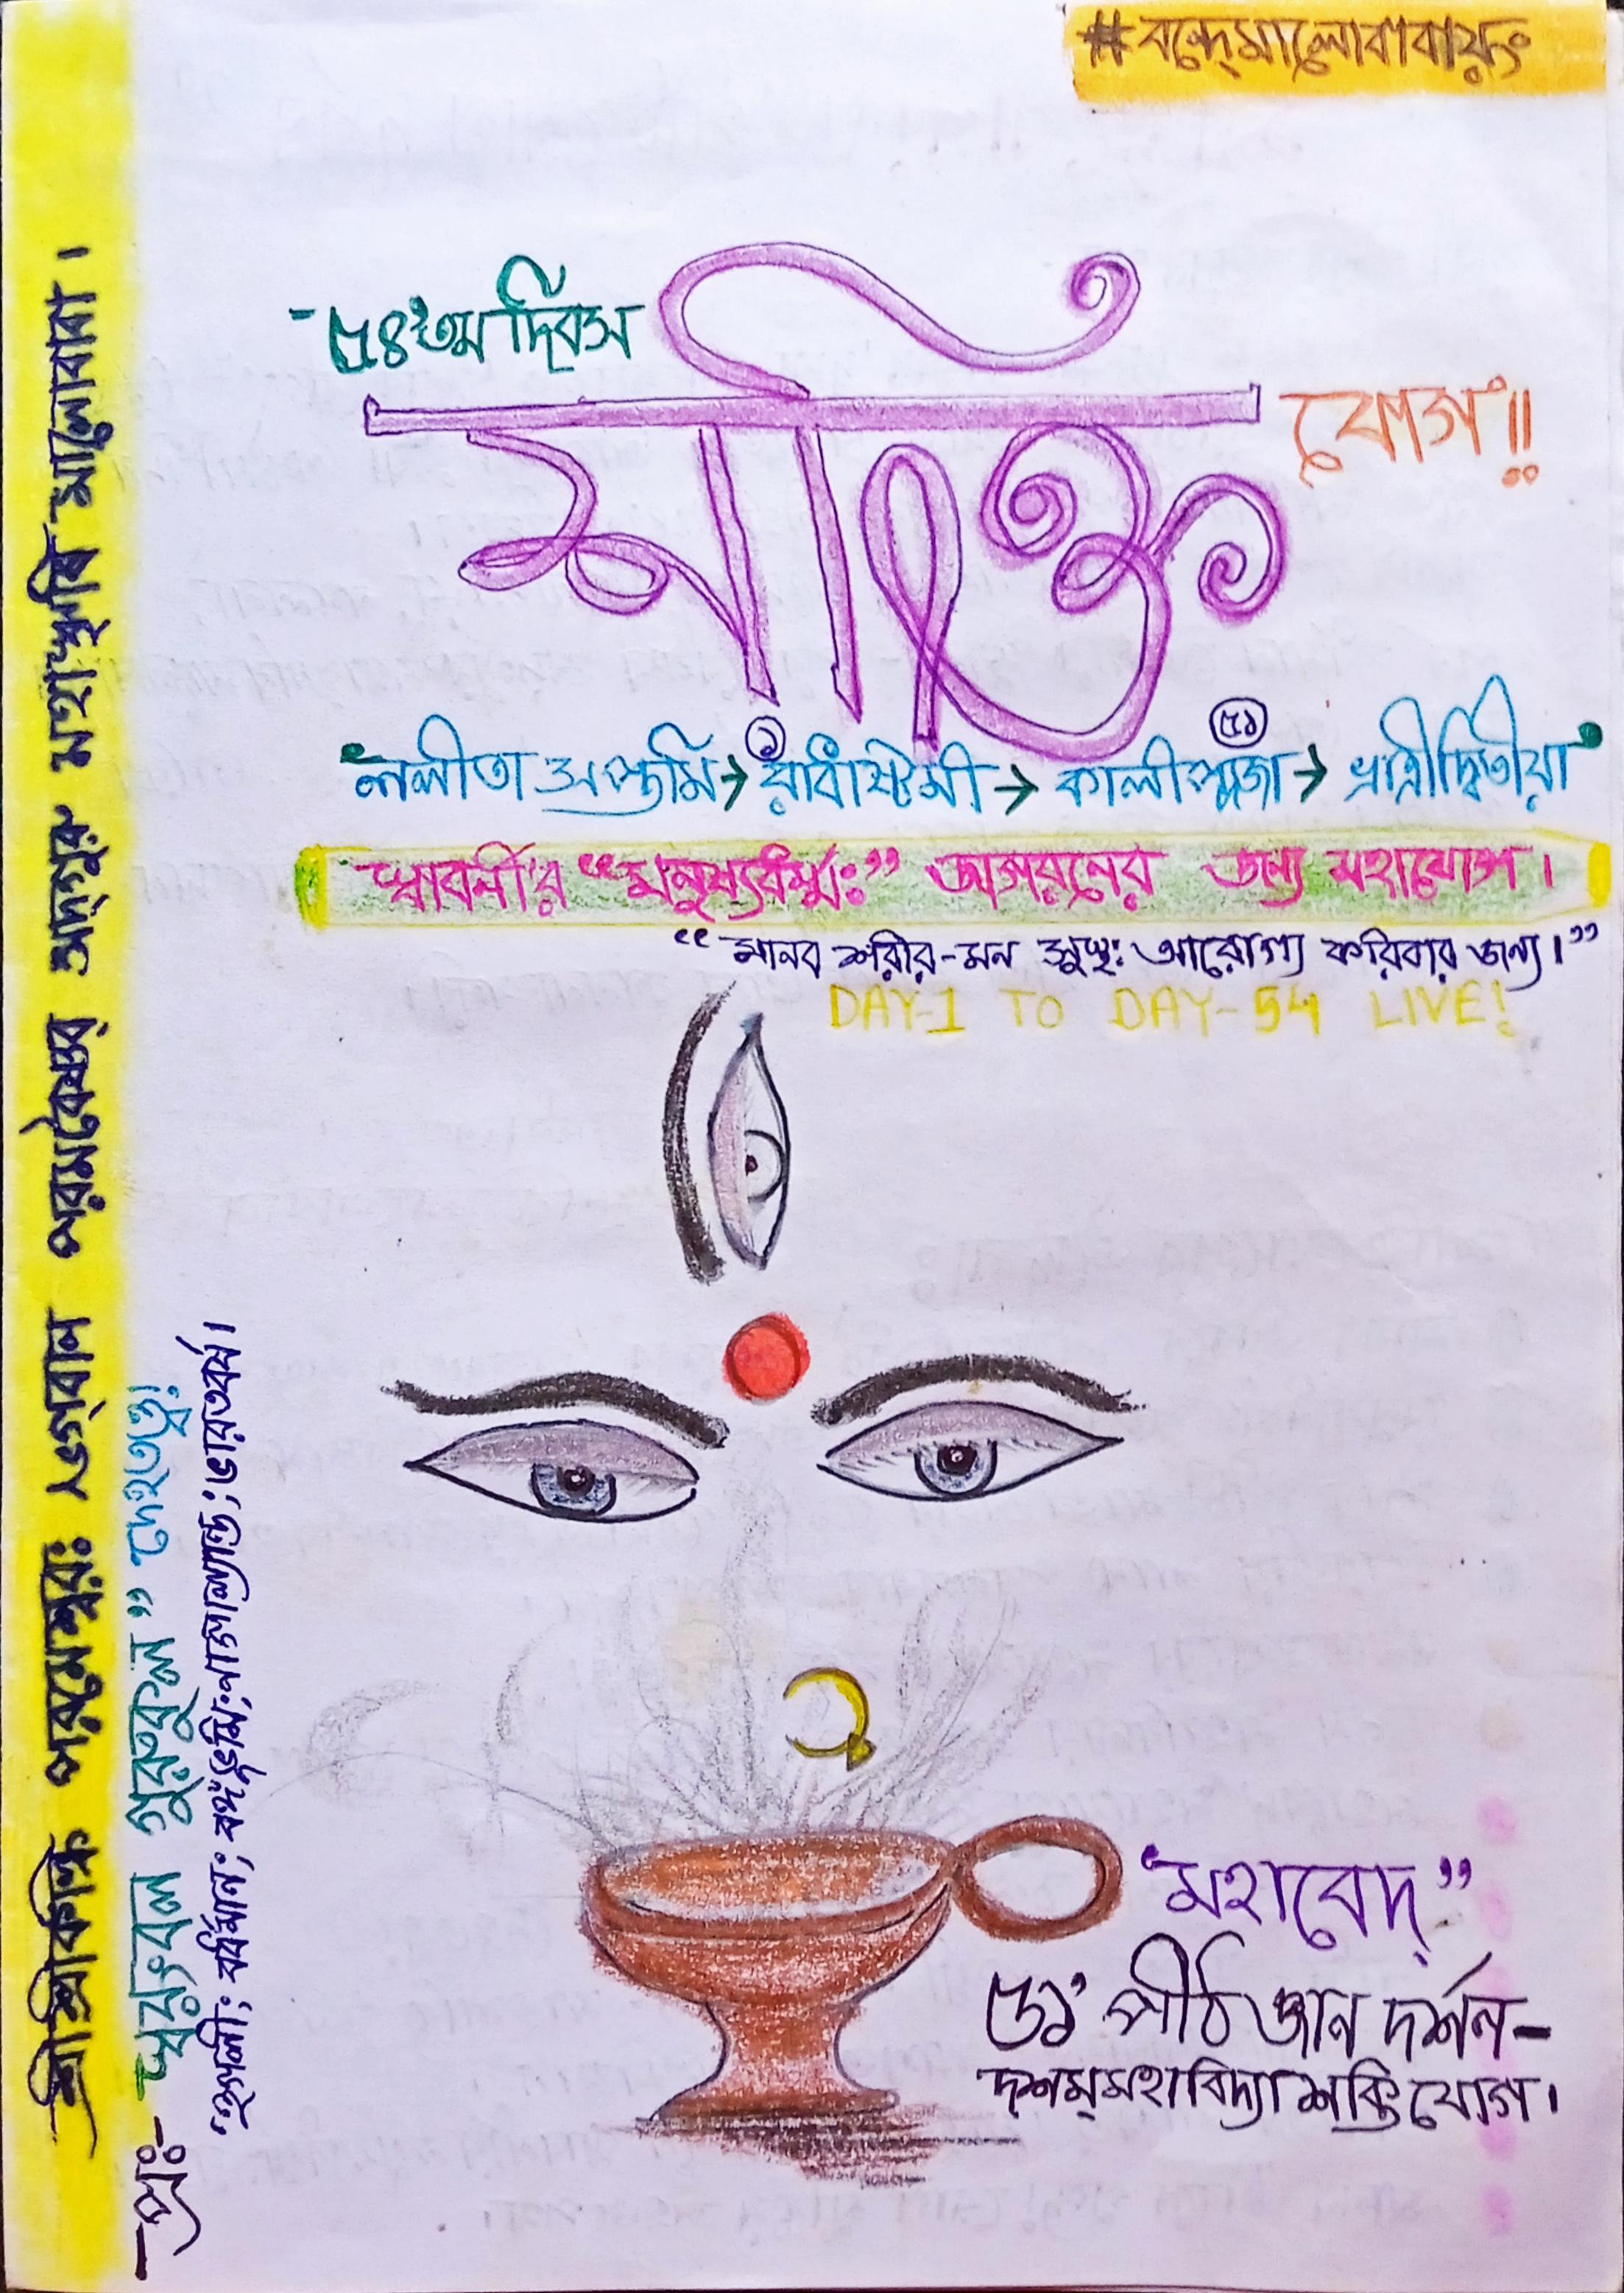 #বন্দেমালোবাবায়ঃ
৫৪'তম দিবস
শক্তি
যোগ॥
ললীতা সপ্তমি → রাধাষ্টমী → কালীপূজা → ভ্রাত্রীদ্বিতীয়া
১ ৫১
"মনুষ্যধর্ম্মঃ" জাগরনের জন্য মহাযোগ।
"মানব শরীর-মন সুস্থঃ আরোগ্য করিবার জন্য।"
DAY-1 TO DAY-54 LIVE!
"মহাবেদ্"
৫১' পীঠ জ্ঞান দর্শন-
দশমমহাবিদ্যা শক্তি যোগ।
শ্রীশ্রীকল্কি পরমেশ্বরঃ ভগবান পরমবৈষ্ণব্ সদ্গুরু মহাঋষি মালোবাবা।
স্বয়ংবল গুরুকুল" দেহতত্ত্ব!
হুগলী; বর্ধমান; বঙ্গভূমি; ভারতবর্ষ।